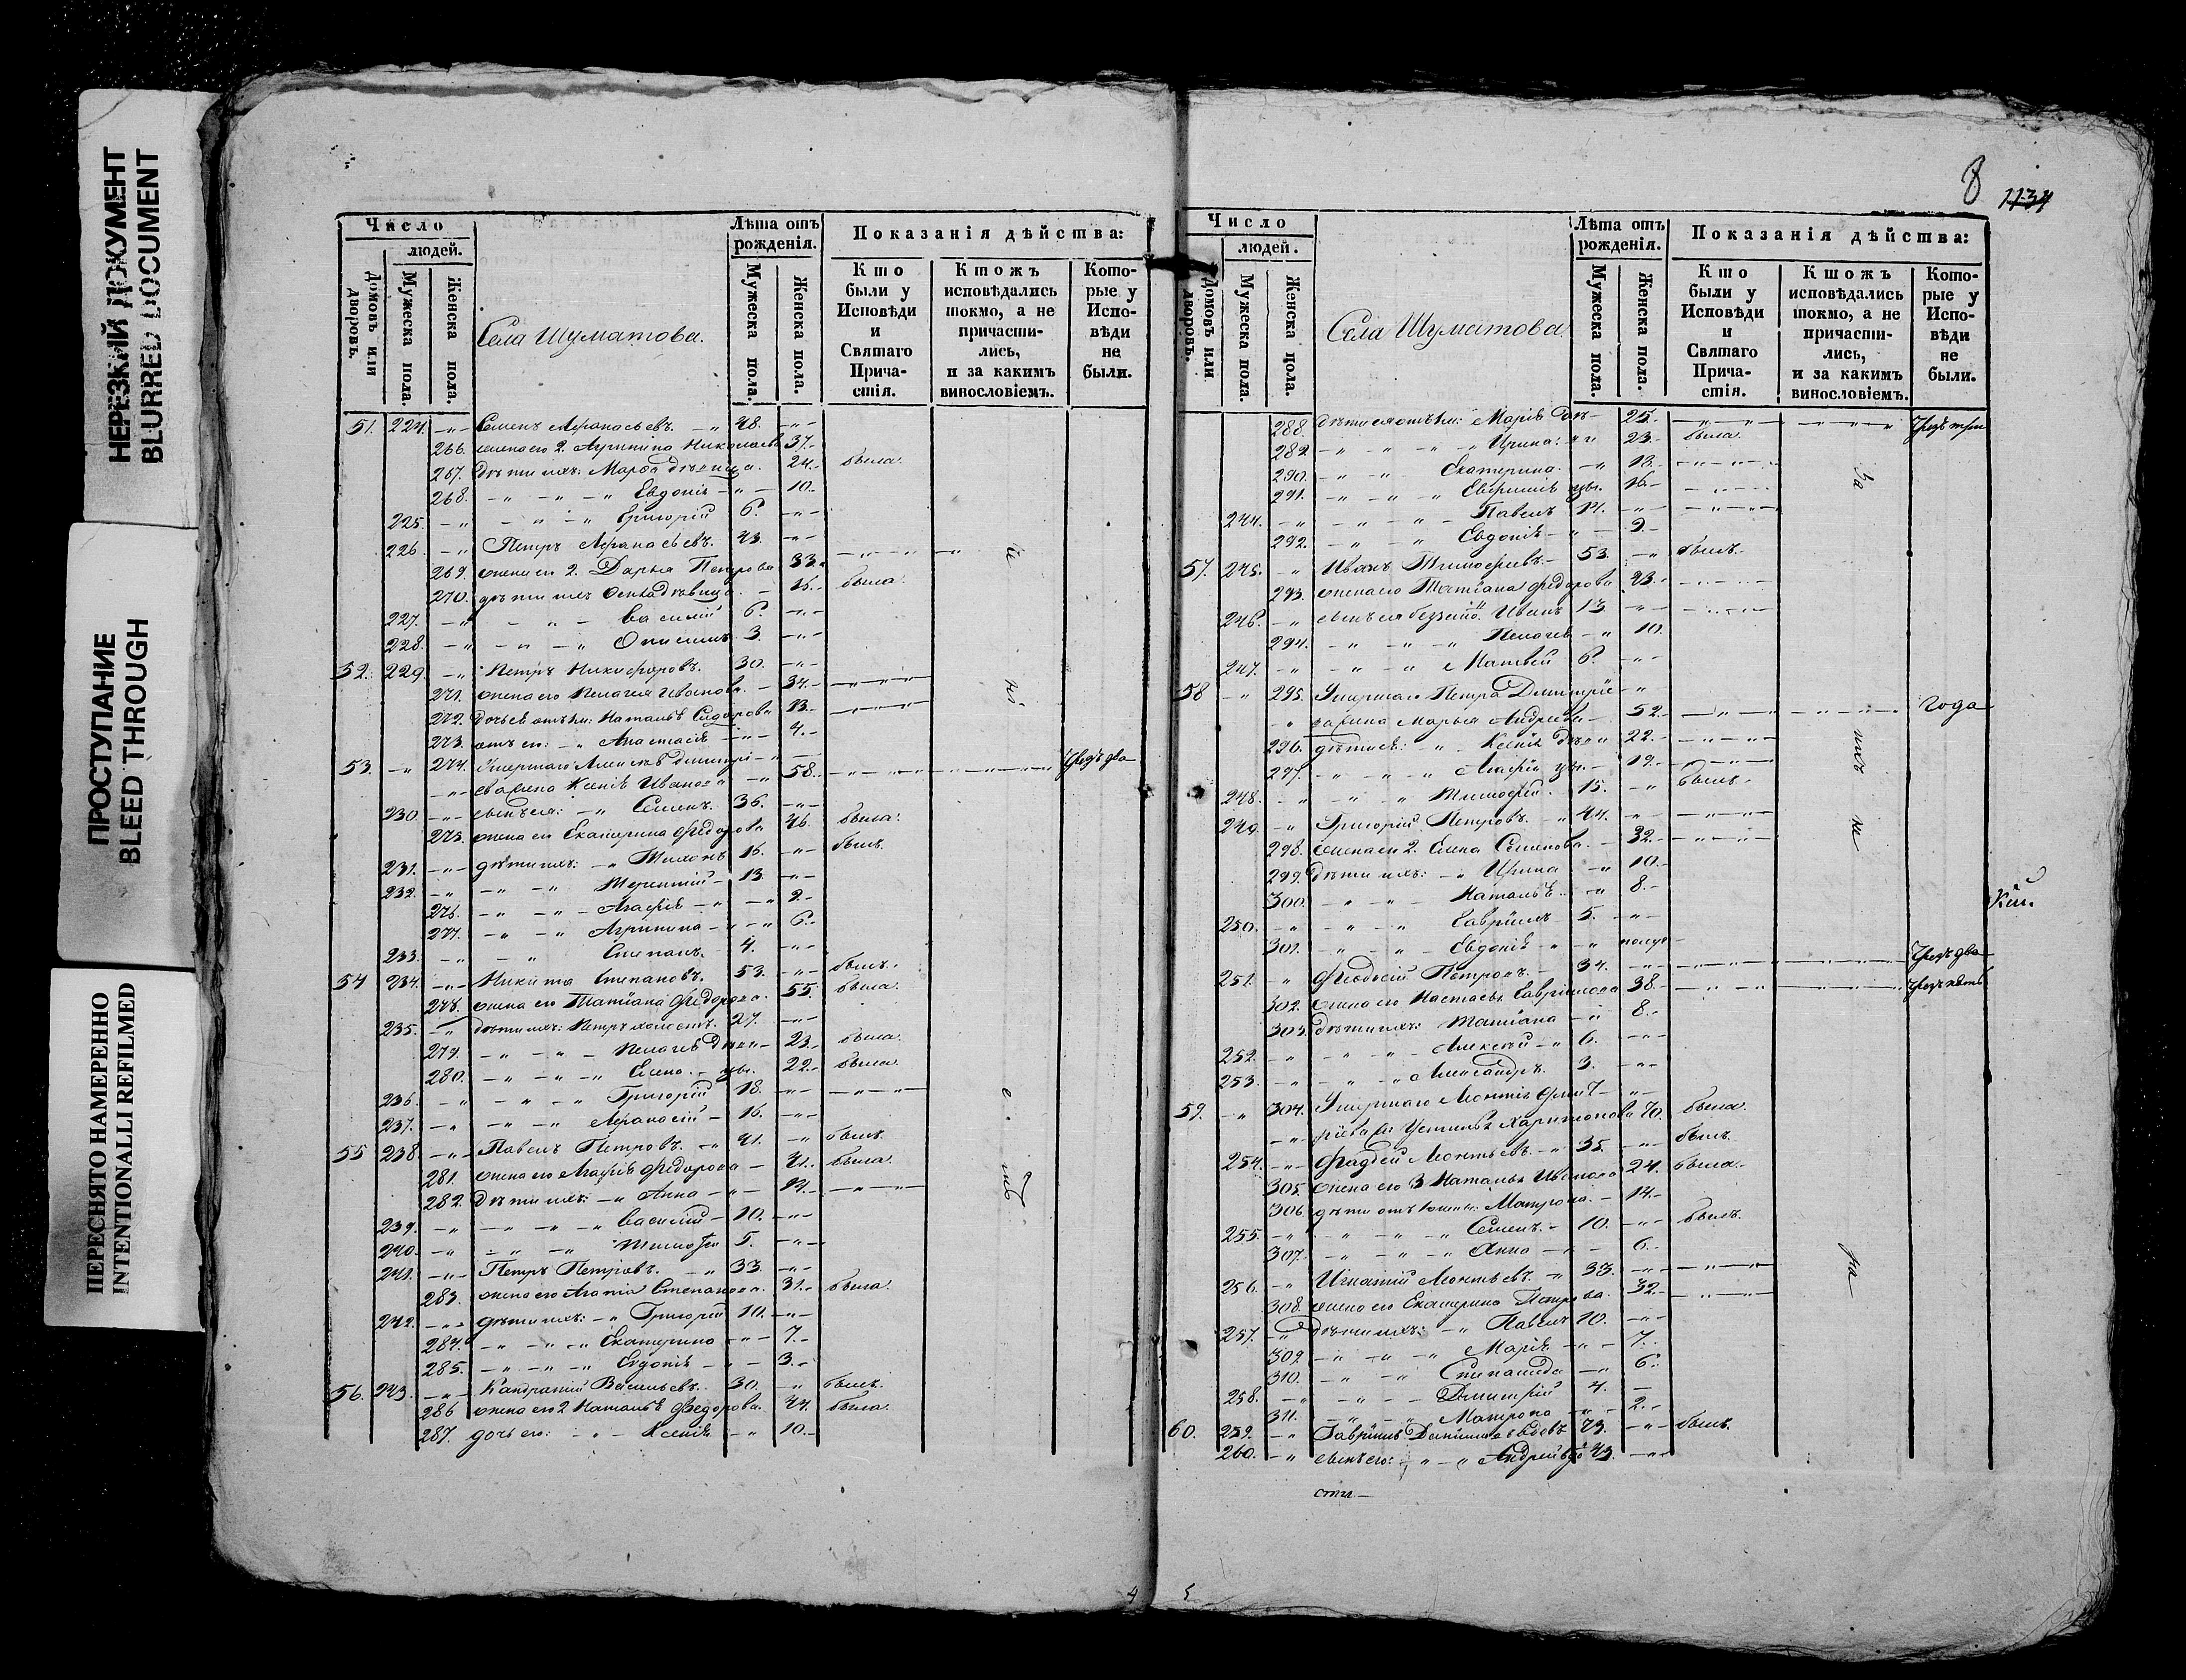 НЕРЕЗКИЙ ДОКУМЕНТ
BLURRED DOCUMENT
ПРОСТУПАНИЕ
BLEED THROUGH
ПЕРЕСНЯТО НАМЕРЕННО
INTENTIONALLI REFILMED
Число
людей.
Домовъ или дворовъ.
Мужеска пола.
Женска пола.
Села Шуматова.
Лѣта отъ рожденія.
Мужеска пола.
Женска пола.
Показанія дѣйства:
Кто были у Исповѣди и Святаго Прича-стія.
Ктожъ исповѣдались токмо, а не причасти-лись, и за какимъ винословіемъ.
Кото-рые у Испо-вѣди не были.
51. 224. Семенъ Афанасьевъ. 48.
266. жена его 2. Агрипина Николаева 37.
267. дѣти ихъ: Марѳа дѣвица. 24. была.
268. Евдокія 10.
225. Григорій 6.
226. Петръ Афанасьевъ. 43.
269. жена его 2. Дарья Петрова 33.
270. дѣти ихъ дѣвица. 15. была.
227. Василій 6.
228. Онисимъ 3.
52. 229. Петръ Никифоровъ. 30.
271. жена его Пелагея Иванова. 34.
272. дочь ея отъ Наталья Сидорова 13.
273. Анастасія 4.
53. 274. Умершаго Алексѣя Дмитрі-
ева жена Ксенія Иванова 58. Чрезъ два
230. сынъ ея: Семенъ. 36.
275. жена его Екатерина Федорова 46. была.
231. дѣти ихъ: Тихонъ 16. былъ.
232. Терентій 13.
276. Агафія 9.
277. Агрипина 6.
233. Степанъ. 4.
54 234. Никита Степановъ. 53. былъ.
278. жена его Татіана Федорова. 55. была.
235. дѣти ихъ: Петръ холостъ. 27.
279. Пелагея 23. была.
280. Елена. 22. была.
236. Григорій 18.
237. Афанасій 16.
55 238. Павелъ Петровъ. 41. былъ.
281. жена его Агафія Федорова 41. была.
282. дѣти ихъ: Анна 14.
239. Василій 10.
240. Тимофей 5.
241. Петръ Петровъ. 33.
283. жена его Агафія Степанова. 31. была.
242. дѣти ихъ: Григорій 10.
284. Екатерина 7.
285. Евдокія 3.
56. 243. Кондратій Васильевъ. 30. былъ.
286 жена его 2 Наталья Федорова. 44. была.
287. дочь его: Ксенія 10.
4
8
1134
Число
людей.
Домовъ или дворовъ.
Мужеска пола.
Женска пола.
Села Шуматова
Лѣта отъ рожденія.
Мужеска пола.
Женска пола.
Показанія дѣйства:
Кто были у Исповѣди и Святаго Прича-стія.
Ктожъ исповѣдались токмо, а не причасти-лись, и за какимъ винословіемъ.
Кото-рые у Испо-вѣди не были.
288. Марія 25. Чрезъ три
289. Ирина: 23. была.
290. Екатерина. 18.
291. Евфимія 16.
244. Павелъ 14.
292. Евдокія 9.
57. 245. Иванъ Тимофеевъ. 53. былъ.
293. жена его Татіана Федорова 43.
246. Иванъ 13
294. Пелагея 10.
247. Матвей 6.
58 295. Умершаго Петра Дмитріе-
ва жена Марья Андреева 52. года
296. дѣти ея: Ксенія 22.
297. Агафія 19.
248. Тимофей. 15. былъ.
249. Григорій Петровъ. 44.
298. жена его 2. Елена Семенова. 32.
299. дѣти ихъ: Ирина 10.
300. Наталья. 8.
250. Гавріилъ 5.
301. Евдокія
251. Феодосій Петровъ. 34. Чрезъ два
302. жена его Настасья Гавриилова 38.
303. дѣти ихъ: Татіана 8.
252. Алексѣй 6.
253. Александръ. 3.
59. 304. Умершаго Леонтія
жена Харитонова 70. была.
254. Фаддей Леонтьевъ. 35. былъ.
305. жена его 3 Наталья Иванова 24. была.
306. Матрона. 14.
255. Семенъ. 10. былъ.
307. Анна 6.
256. Игнатій Леонтьевъ. 33.
308. жена его Екатерина Петрова. 32.
257. дѣти ихъ: Павелъ 10.
309. Марія 7.
310. Степанида 6.
258. Дмитрій 4.
311. Матрона 2.
60. 259. Гавріилъ Даниловъ вдовъ 73. былъ.
260. сынъ его: Андрей 43.